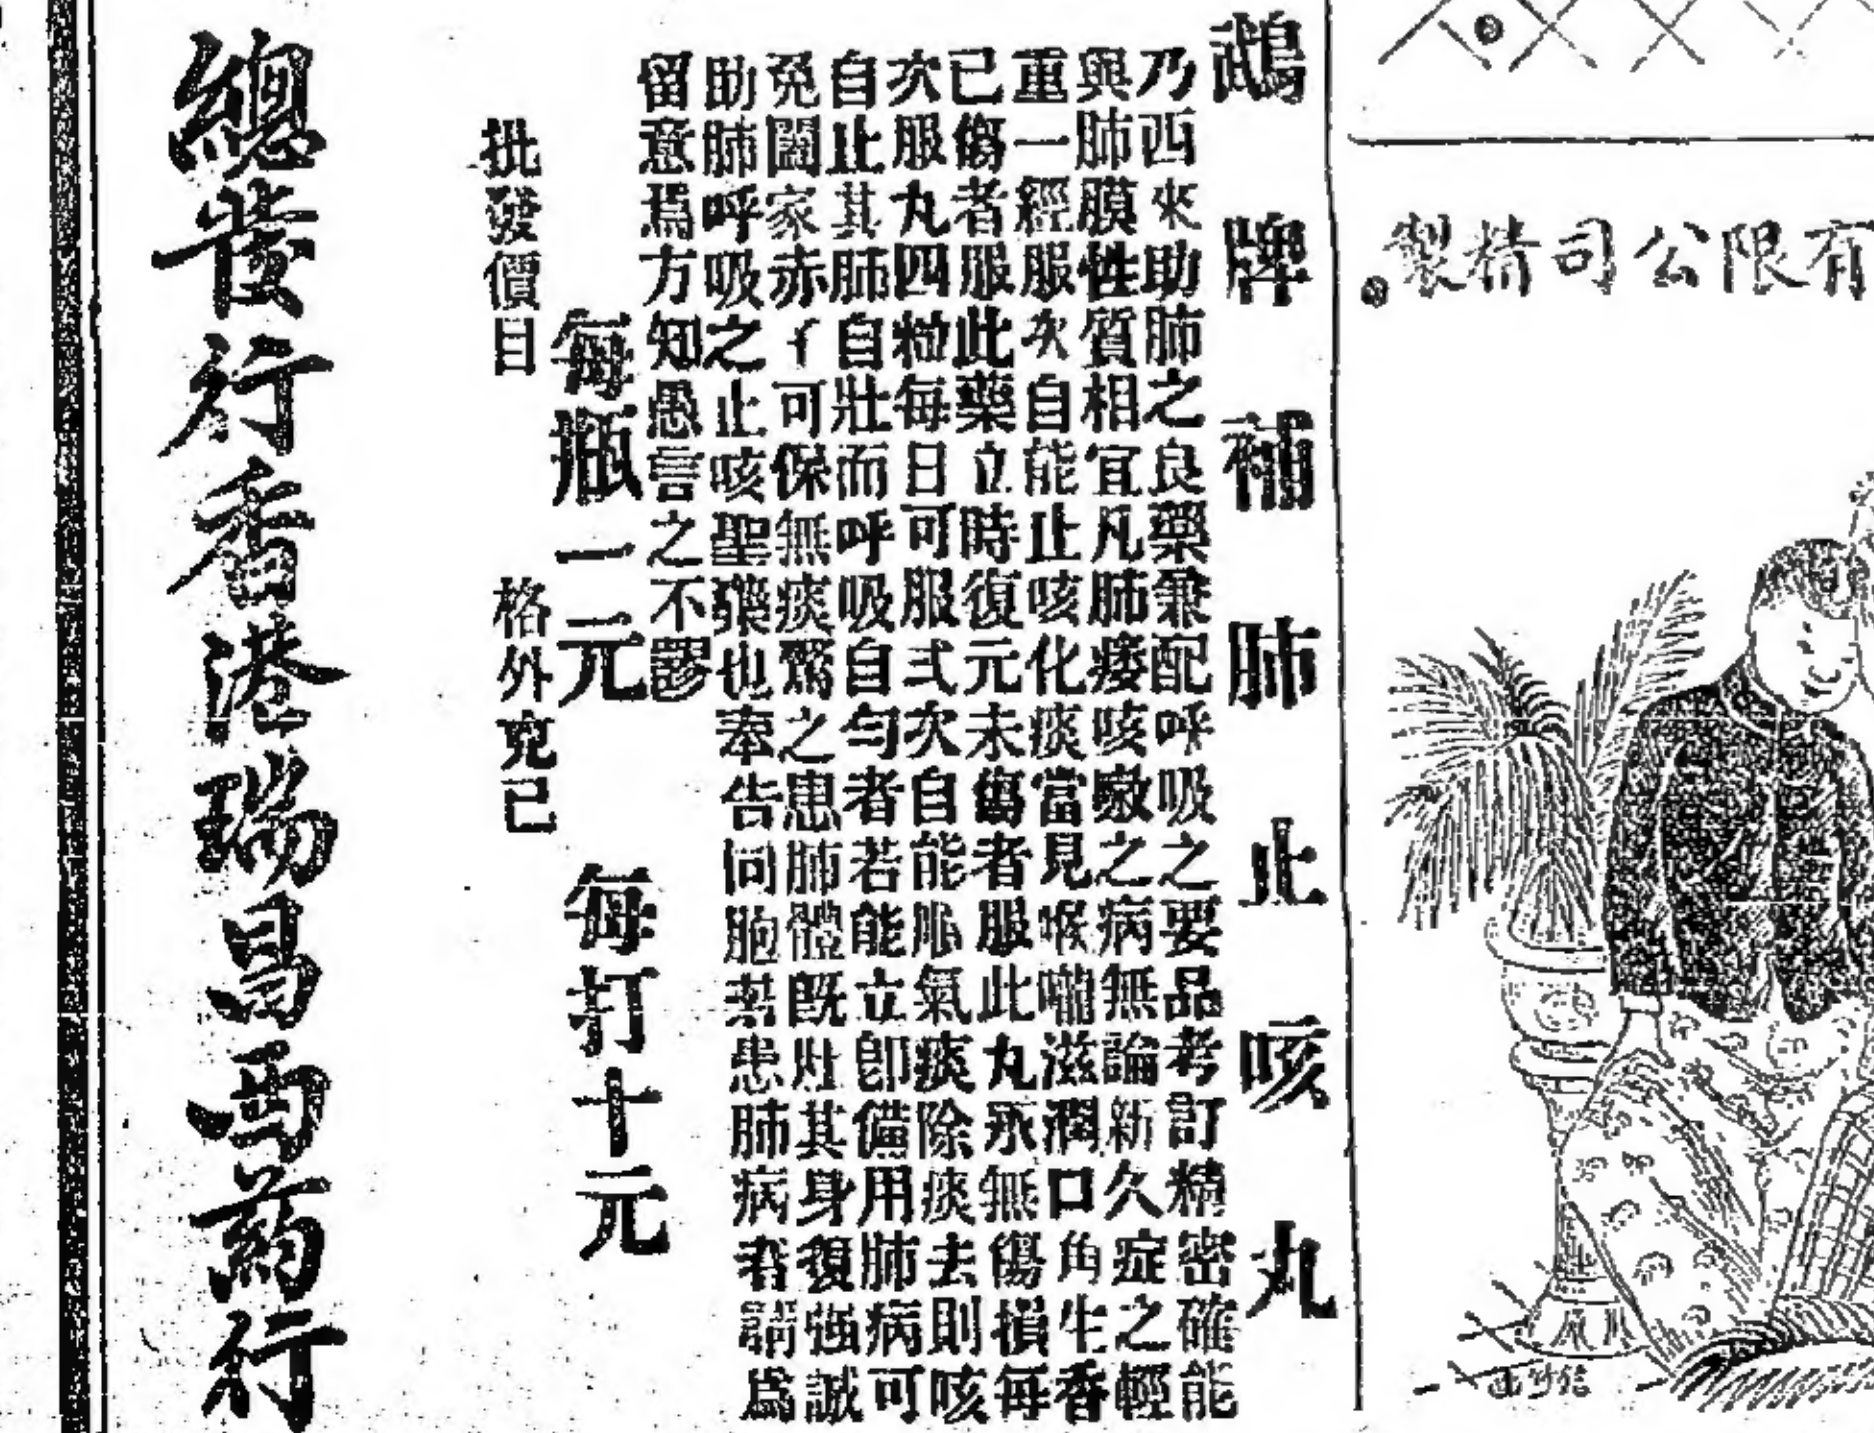 有限公司精製
鵡牌補肺止咳丸
乃西來助肺之良藥兼配呼吸之要品考訂精密確能
與肺膜性質相宜凡肺痿咳嗽之病無論新久症之輕
重一經服次自能止咳化痰當見喉嚨滋潤口角生香
已傷者服此藥立時復元未傷者服此丸永無傷損每
次服丸四粒每日可服弍次自能順氣痰除痰去則咳
自止其肺自壯而呼吸自勻者若能立卽備用肺病可
免闔家赤子可保無痰之患肺體既壯其身復强誠
助肺呼吸之止咳聖藥也奉告同胞若患肺病者請爲
留意焉方知愚言之不謬
每瓶一元 每打十元
批發價目 格外克己
總發行香港瑞昌西葯行